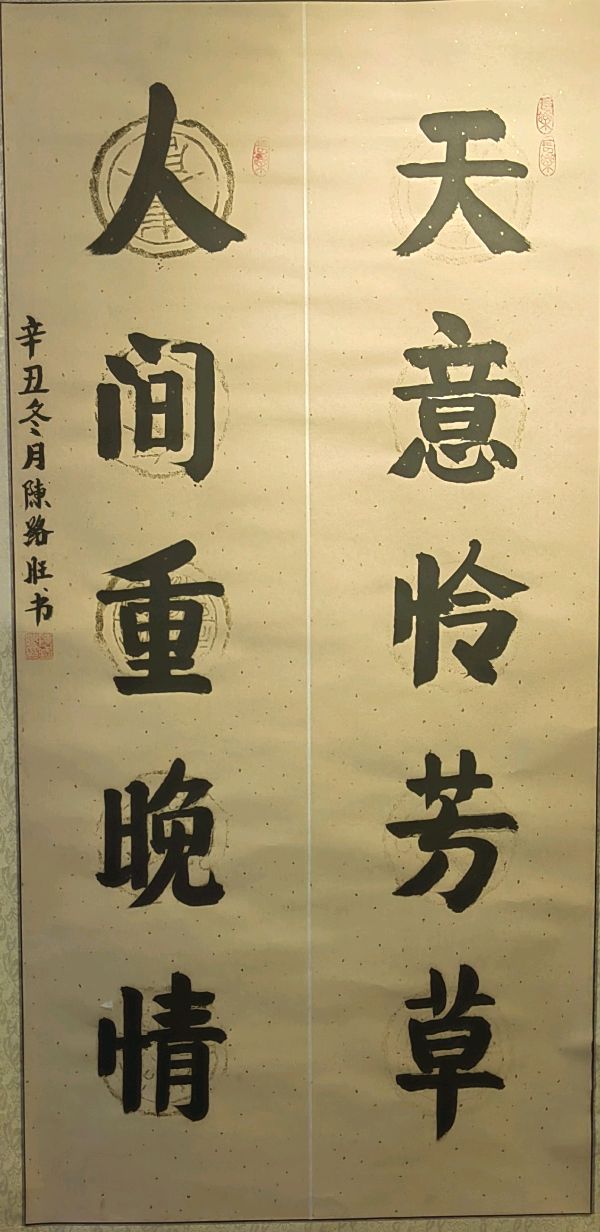 天意怜芳草
人间重晚情
辛丑冬月陳路旺书